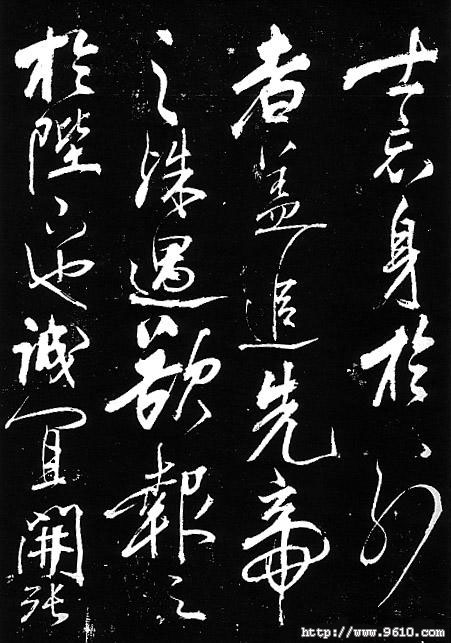 士忘身於外
者蓋追先帝
之殊遇欲報之
於陛下也誠宜開張
http://www.9610.com